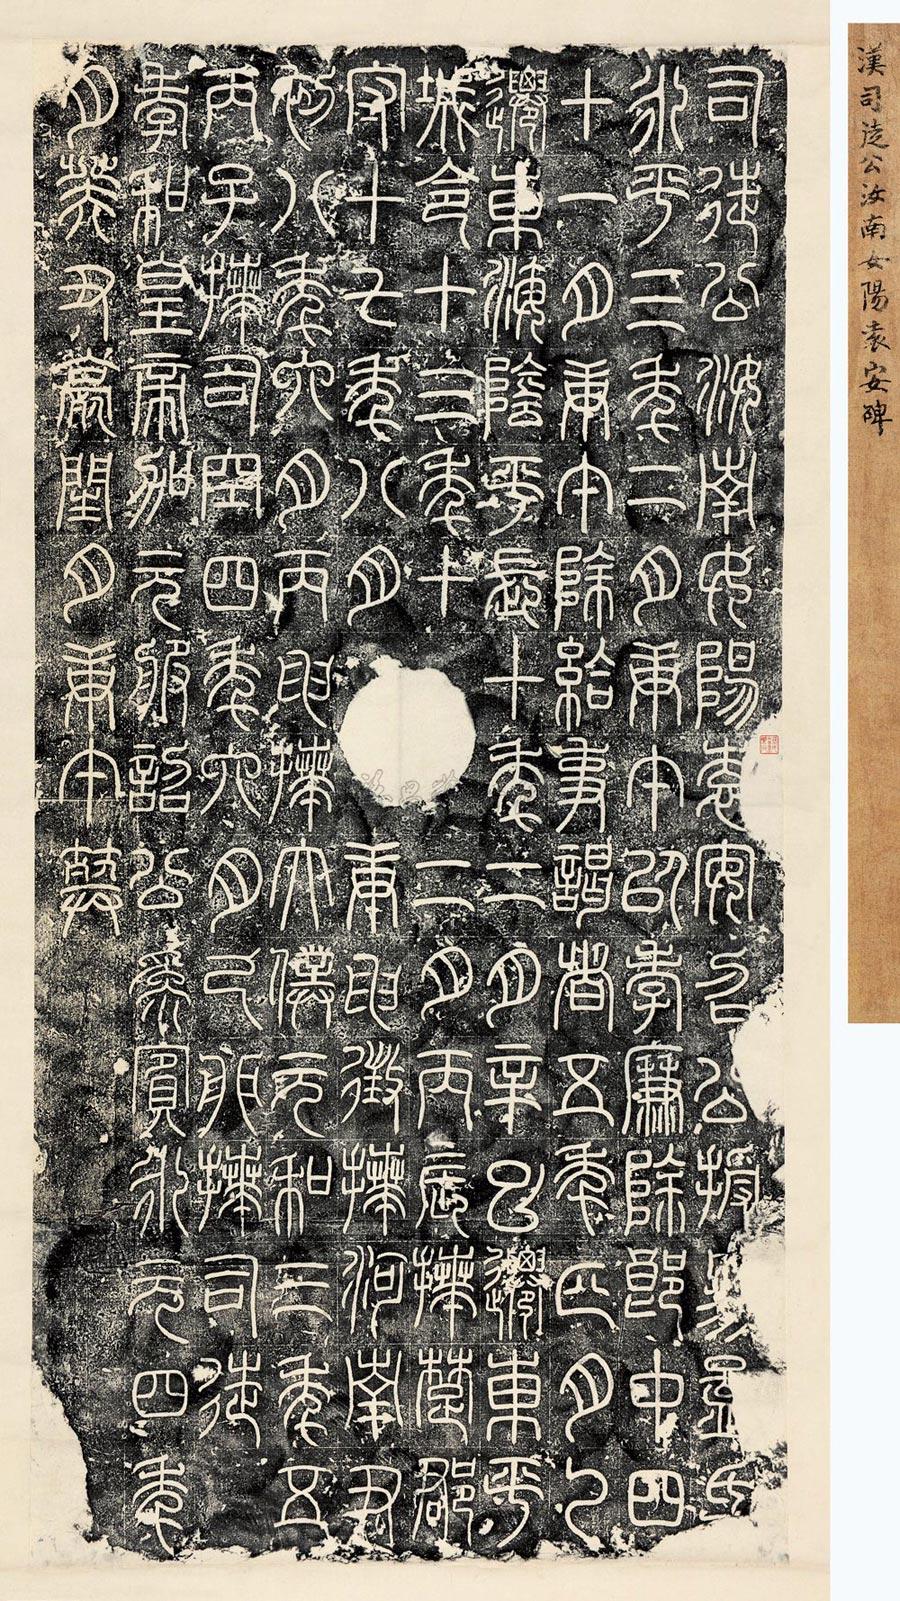 漢司徒公汝南女陽袁安碑
司徒公汝南女陽袁安召公授易孟氏
永平三年二月庚午以孝廉除郎中四
十一月庚午除給事謁者五年正月乙
遷東海陰平長十年二月辛巳遷東平
城令十三年十二月丙辰拜楚郡
守十七年八月庚申徵拜河南尹
初八年六月丙申拜太僕元和三年五
丙子拜司空四年六月己卯拜司徒
孝和皇帝加元服詔公為賓永元四年
月癸丑薨閏月庚午葬